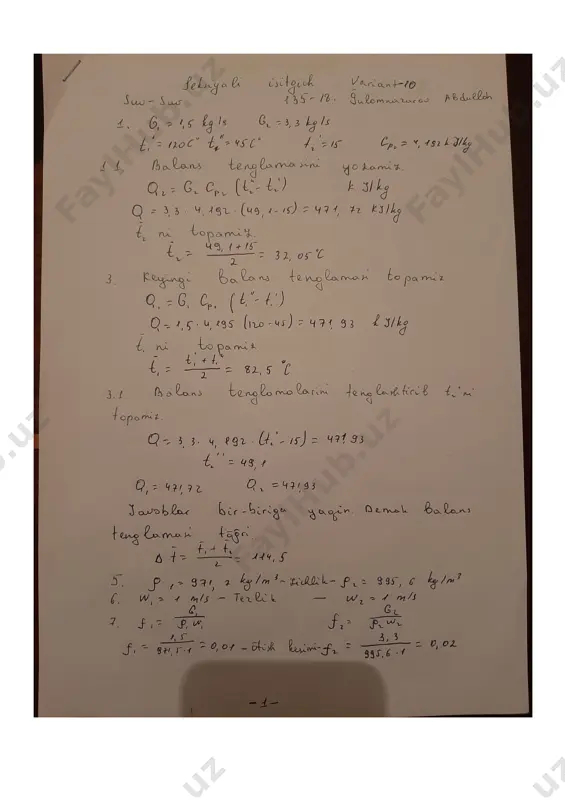 Seksiyali isitgich Variant-10
Suv-Suv 135-18. Gulomnazarov Abdulloh
1. G₁ = 1,5 kg/s G₂ = 3,3 kg/s
t₁' = 120C° t₁" = 45C° t₂' = 15 Cp₂ = 4,192 kJ/kg
1.1. Balans tenglamasini yozamiz.
Q₂ = G₂ Cp₂ (t₂" - t₂') kJ/kg
Q = 3,3 · 4,192 · (49,1 - 15) = 471,72 kJ/kg
t̄₂ ni topamiz.
t̄₂ = (49,1 + 15)/2 = 32,05 °C
3. Keyingi balans tenglamasi topamiz
Q₁ = G₁ Cp₁ (t₁" - t₁')
Q = 1,5 · 4,195 (120 - 45) = 471,93 kJ/kg
t̄₁ ni topamiz
t̄₁ = (t₁' + t₁")/2 = 82,5 °C
3.1 Balans tenglamalarini tenglashtirib t₂' ni
topamiz.
Q = 3,3 · 4,192 · (t₂' - 15) = 471,93
t₂'' = 49,1
Q₁ = 471,72 Q₂ = 471,93
Javoblar bir-biriga yaqin. Demak balans
tenglamasi tŭğri
Δt̄ = (t̄₁ + t̄₂)/2 = 114,5
5. ρ₁ = 971, kg/m³ - zichlik - ρ₂ = 995,6 kg/m³
6. W₁ = 1 m/s - Tezlik — W₂ = 1 m/s
7. f₁ = G₁/(ρ₁ W₁) f₂ = G₂/(ρ₂ W₂)
f₁ = 1,5/(971,5 · 1) = 0,01 - ŭtish kesimi - f₂ = 3,3/(995,6 · 1) = 0,02
-1-
FaylHub.uz
FaylHub.uz
FaylHub.uz
FaylHub.uz